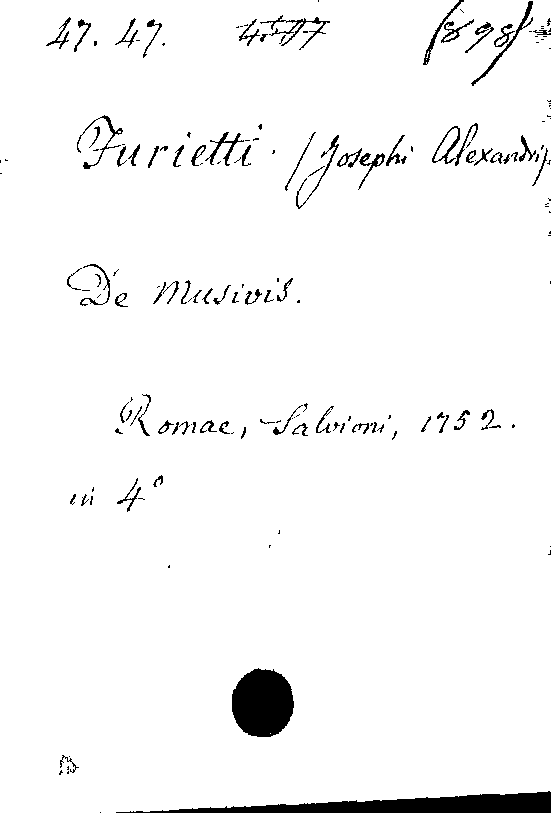 47. 47. (898)
Furietti. (Josephi Alexandri)
De Musivis.
Romae, Salvioni, 1752.
in 4°